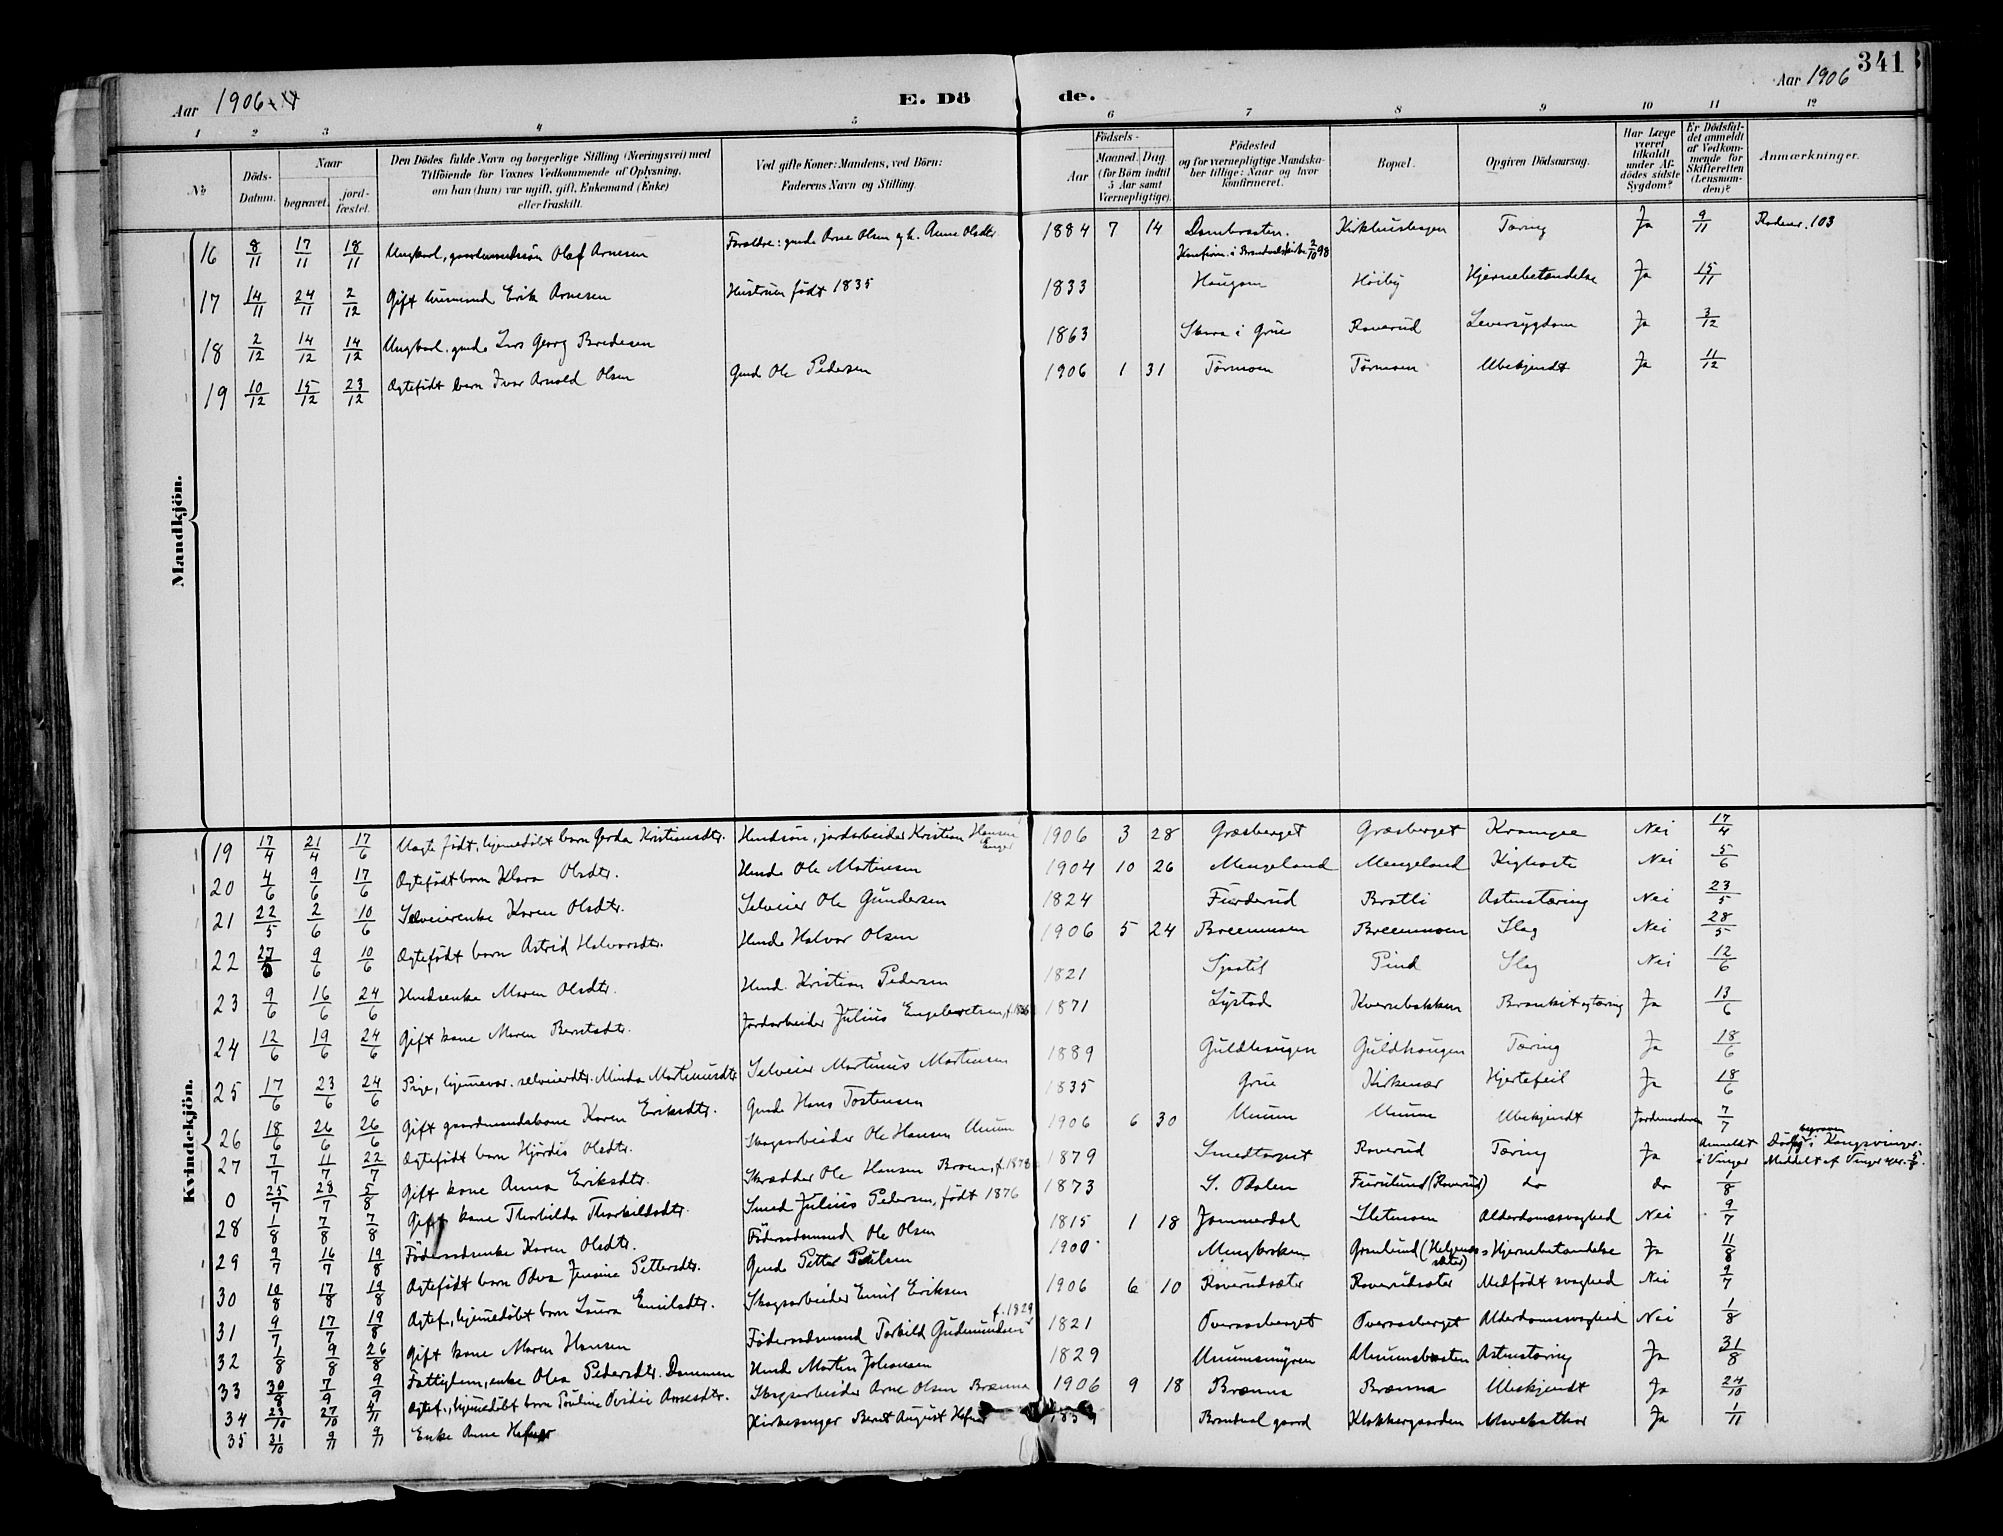 341
Aar 1906
E. Dö
de.
Aar 1906
1 2 3 4 5 6 7 8 9 10 11 12
No
Döds-Datum.
Naar
begravet.
jordfæstet.
Den Dödes fulde Navn og borgerlige Stilling (Næringsvei) med
Tilföiende for Voxnes Vedkommende af Oplysning,
om han (hun) var ugift, gift, Enkemand (Enke)
eller fraskilt.
Ved gifte Koner: Mandens, ved Börn:
Faderens Navn og Stilling.
Födsels-
Aar
Maaned. Dag
(for Börn indtil
5 Aar samt
Værnepligtige).
Födested
og for værnepligtige Mandskaber tillige: Naar og hvor
konfirmeret.
Bopæl.
Opgiven Dödsaarsag.
Har Læge
været
tilkaldt
under Afdödes sidste
Sygdom?
Er Dödsfaldet anmeldt
af Vedkommende for
Skifteretten
(Lensmanden)?
Anmærkninger.
Mandkjön.
16 8/11 17/11 18/11 Ungkarl, gaardmandssön Olaf Arnesen Forældre: gmd. Arne Olsen og h. Anne Olsdtr. 1884 7 14 Kirkhushagen Tæring Ja 9/11 Rodenr. 103
17 14/11 24/11 2/12 Gift husmand Erik Arnesen Hustruen født 1835 1833 Haugom Höiby Hjernebetændelse Ja 15/11
18 2/12 14/12 14/12 Ungkarl, gmd. Lars Georg Bredesen 1863 Skara i Grue Roverud Leversygdom Ja 3/12
19 10/12 15/12 23/12 Ægtefödt barn Ivar Arnold Olsen Gmd Ole Pedersen 1906 1 31 Törmoen Törmoen Ubekjendt Ja 11/12
Kvindekjön.
19 17/4 21/4 17/6 Uægte födt, hjemmedöbt barn Gerda Kristiansdtr. Husmdsön, jordarbeider Kristian Hansen Enger 1906 3 28 Græsberget Græsberget Krampe Nei 17/4
20 4/6 9/6 17/6 Ægtefödt barn Klara Olsdtr. Husmd. Ole Martinsen 1904 10 26 Mengeland Mengeland Kighoste Nei 5/6
21 22/5 2/6 10/6 Selveierenke Karen Olsdtr. Selveier Ole Gundersen 1824 Furderud Bratli Astmatæring Nei 23/5
22 27/5 9/6 10/6 Ægtefödt barn Astrid Halvorsdtr. Husmd. Halvor Olsen 1906 5 24 Breenmoen Breenmoen Slag Nei 28/5
23 9/6 16/6 24/6 Husmdsenke Maren Olsdtr. Husmd. Kristian Pedersen 1821 Pind Slag Nei 12/6
24 12/6 19/6 24/6 Gift kone Maren Berntsdtr. Jordarbeider Julius Engebretsen, f. 1866 1871 Lystad Kvernbakken Bronkit og tæring Ja 13/6
25 17/6 23/6 24/6 Pige, hjemmevær. selveierdtr. Minda Martinusdtr. Selveier Martinus Martinsen 1889 Guldhaugen Guldhaugen Tæring Ja 18/6
26 18/6 26/6 26/6 Gift gaardmandskone Karen Eriksdtr. Gmd. Hans Tostensen 1835 Grue Kirkenær Hjertefeil Ja 18/6
27 7/7 11/7 22/7 Ægtefödt barn Hjördis Olsdtr. Skogsarbeider Ole Hansen Unum 1906 6 30 Unum Unum Ubekjendt Jordemoderen 7/7
0 25/7 28/7 5/8 Gift kone Anna Eriksdtr. Skrædder Ole Hansen Broen, f. 1878 1879 Smedtorpet Roverud Tæring Ja Anmeldt i Vinger Död og begraven i Kongsvinger. Meddelt af Vinger spr.
28 1/8 7/8 7/8 Gift kone Thorbilda Thorkildsdtr. Smed Julius Pedersen, födt 1876 1873 S. Odalen Furulund (Roverud) do do 1/8
29 9/7 16/7 19/8 Föderaadsenke Karen Olsdtr. Föderaadsmand Ole Olsen 1815 1 18 Jammerdal Sletmoen Alderdomssvaghed Nei 9/7
30 10/8 17/8 19/8 Ægtefödt barn Odva Jensine Pettersdtr. Gmd. Petter Paulsen 1900 Grønlund (Helgenæssæter) Hjernebetændelse Ja 11/8
31 9/7 17/7 19/8 Ægtef., hjemmedöbt barn Laura Emilsdtr. Skogsarbeider Emil Eriksen 1906 6 10 Roverudsæter Roverudsæter Medfödt svaghed Nei 9/7
32 1/8 9/8 26/8 Gift kone Maren Hansen Föderaadsmand Torkild Gudmundsen f. 1829 1821 Overaasberget Overaasberget Alderdomssvaghed Nei 1/8
33 30/8 7/9 9/9 Fattiglem, enke Olea Pedersdtr. Dammen Husmd. Martin Johansen 1829 Unumsmyren Unumsbraaten Astmatæring Ja 31/8
34 23/10 27/10 4/11 Ægtef., hjemmedöbt barn Pauline Ovidie Arnesdtr. Skogsarbeider Arne Olsen Brænna 1906 9 18 Brænna Brænna Ubekjendt Ja 24/10
35 31/10 9/11 9/11 Enke Anne Hafner Kirkesanger Bernt August Hafner Brandval gaard Klokkergaarden Mavekatar Ja 1/11